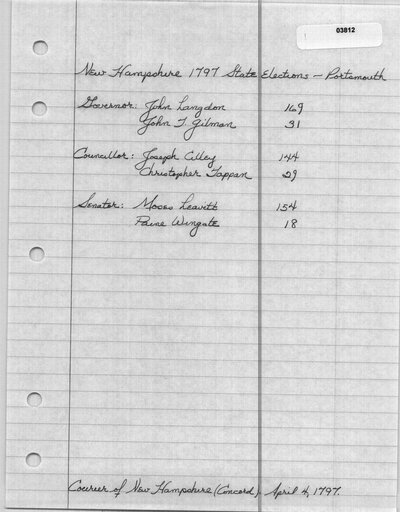 03812
New Hampshire 1797 State Elections – Portsmouth
Governor: John Langdon 169
John T. Gilman 31
Councillor: Joseph Cilley 144
Christopher Tappan 29
Senator: Moses Leavitt 154
Paine Wingate 18
Courier of New Hampshire (Concord). April 4, 1797.